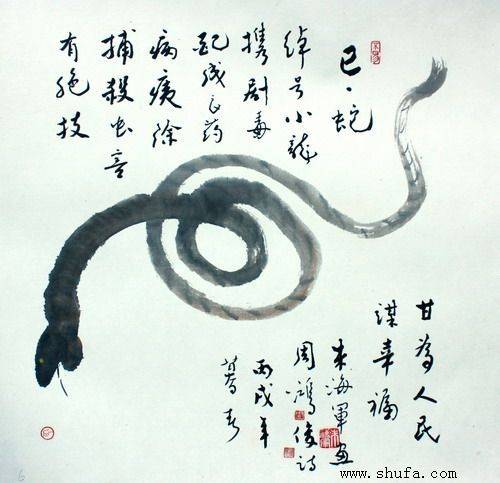 巳·蛇
绰号小龍
携剧毒
配成良药
病痍除
捕殺虫害
有绝技
甘為人民
谋幸福
朱海軍画
周鴻俊诗
丙戌年
暮春
6
www.shufa.com